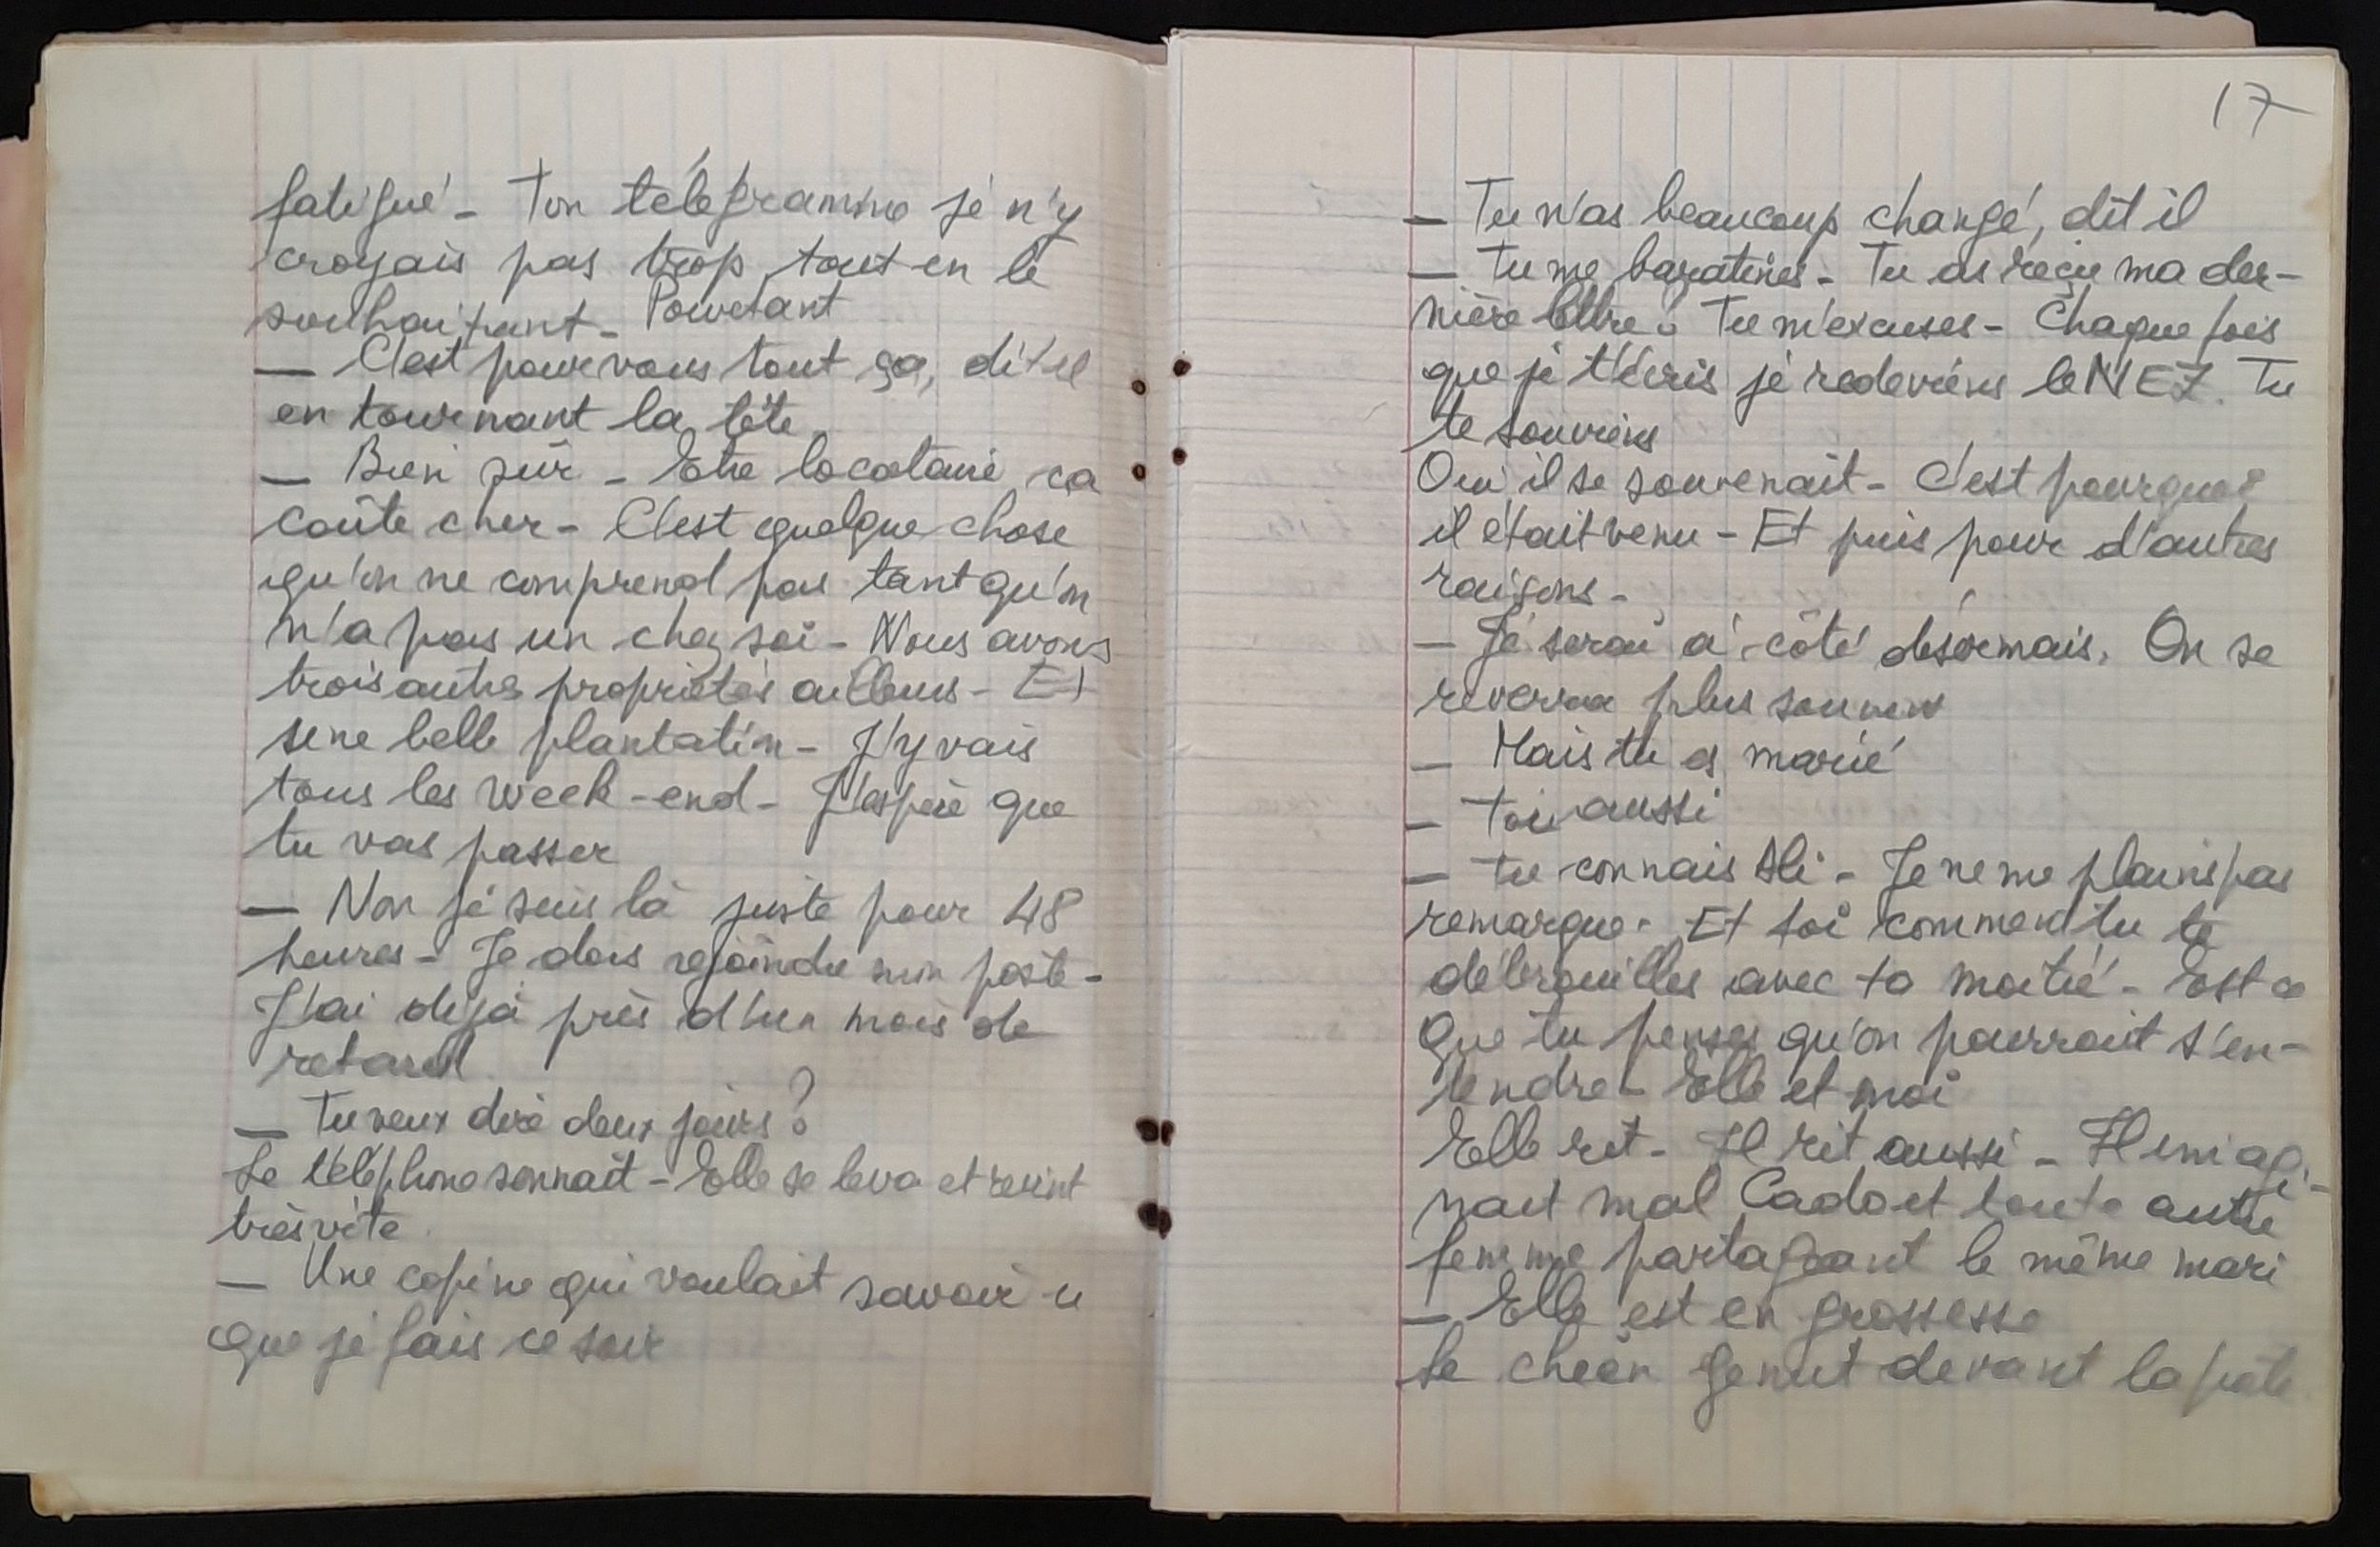 fatigué - Ton télégramme je n'y
croyais pas trop tout en le
souhaitant - Pourtant
— C'est pour vous tout ça, dit il
en tournant la tête
— Bien sûr - Etre locataire ça
coûte cher - C'est quelque chose
qu'on ne comprend pas tant qu'on
n'a pas un chez soi - Nous avons
trois autres propriétés ailleurs - Et
une belle plantation - J'y vais
tous les week-end - J'espère que
tu vas passer
— Non je suis là juste pour 48
heures - Je dois rejoindre mon poste -
J'ai déjà près d'un mois de
retard
— Tu veux dire deux jours ?
Le téléphone sonnait - Elle se leva et revint
très vite
— Une copine qui voulait savoir ce
que je fais ce soir
17
— Tu n'as beaucoup changé, dit il
— Tu me baratines - Tu as reçu ma der-
nière lettre ? Tu m'excuses - Chaque fois
que je t'écris je redeviens le NEZ. Tu
te souviens
Oui il se souvenait - C'est pourquoi
il était venu - Et puis pour d'autres
raisons -
— Je serai à côté désormais. On se
reverra plus souvent
— Mais tu es marié
— Toi aussi
— Tu connais Ali - Je ne me plains pas
remarque - Et toi comment tu te
débrouilles avec ta moitié - Est ce
que tu penses qu'on pourrait s'en-
tendre - Elle et moi
Elle rit - Il rit aussi - Il imagi-
nait mal Cado et toute autre
femme partageant le même mari
— Elle est en grossesse
Le chien gémit devant la porte